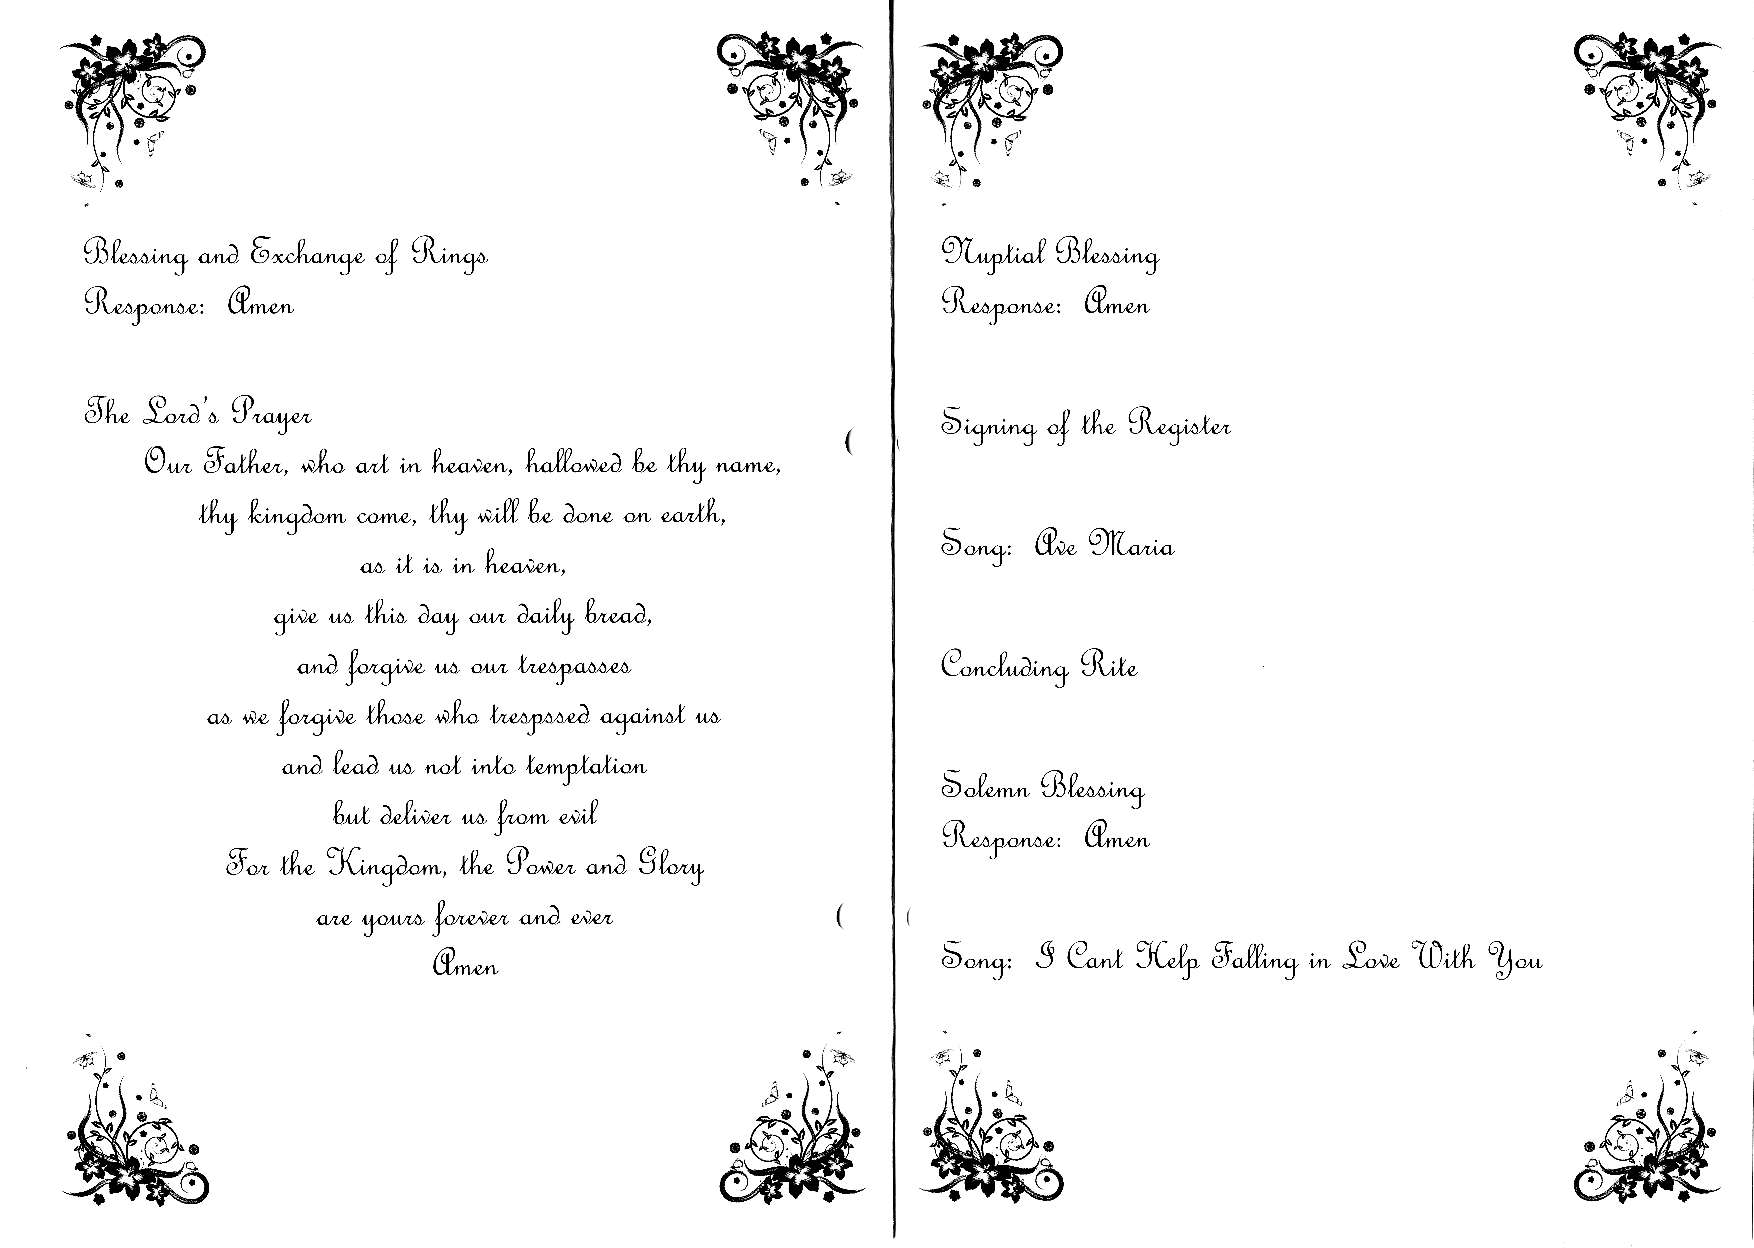 Blessing and Exchange of Rings
Response: Amen
The Lord's Prayer
Our Father, who art in heaven, hallowed be thy name,
thy kingdom come, thy will be done on earth,
as it is in heaven,
give us this day our daily bread,
and forgive us our trespasses
as we forgive those who trespssed against us
and lead us not into temptation
but deliver us from evil
For the Kingdom, the Power and Glory
are yours forever and ever
Amen
Nuptial Blessing
Response: Amen
Signing of the Register
Song: Ave Maria
Concluding Rite
Solemn Blessing
Response: Amen
Song: I Cant Help Falling in Love With You